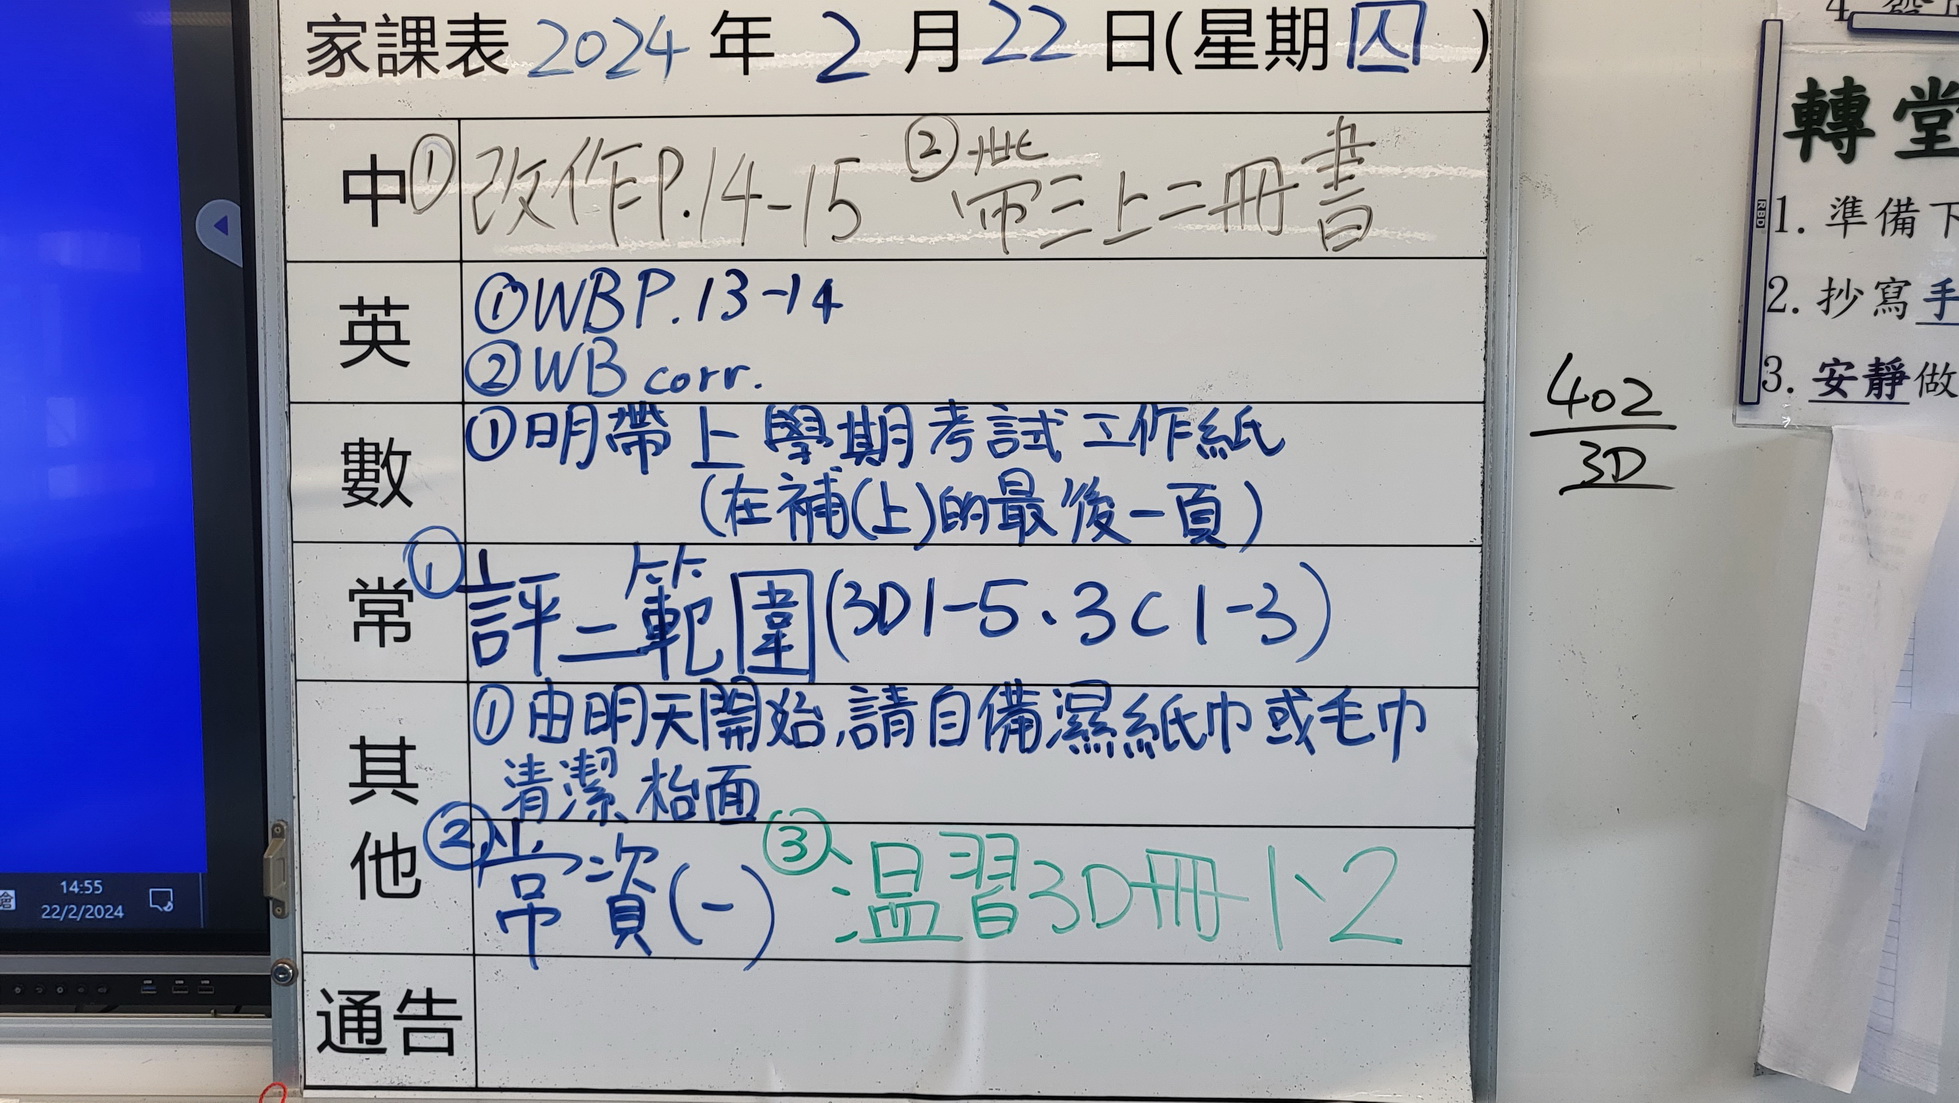 家課表 2024 年 2 月 22 日(星期囚)
中 ①改作P.14-15 ②帶三上二冊書
英 ①WBP.13-14
②WB corr.
數 ①明帶上學期考試工作紙
(在補(上)的最後一頁)
常 ①評二範圍(3D1-5、3C1-3)
其他 ①由明天開始,請自備濕紙巾或毛巾
清潔枱面
②常資(一) ③溫習3D冊1、2
通告
402
3D
轉堂
1. 準備下
2. 抄寫手
3. 安靜做
14:55
22/2/2024